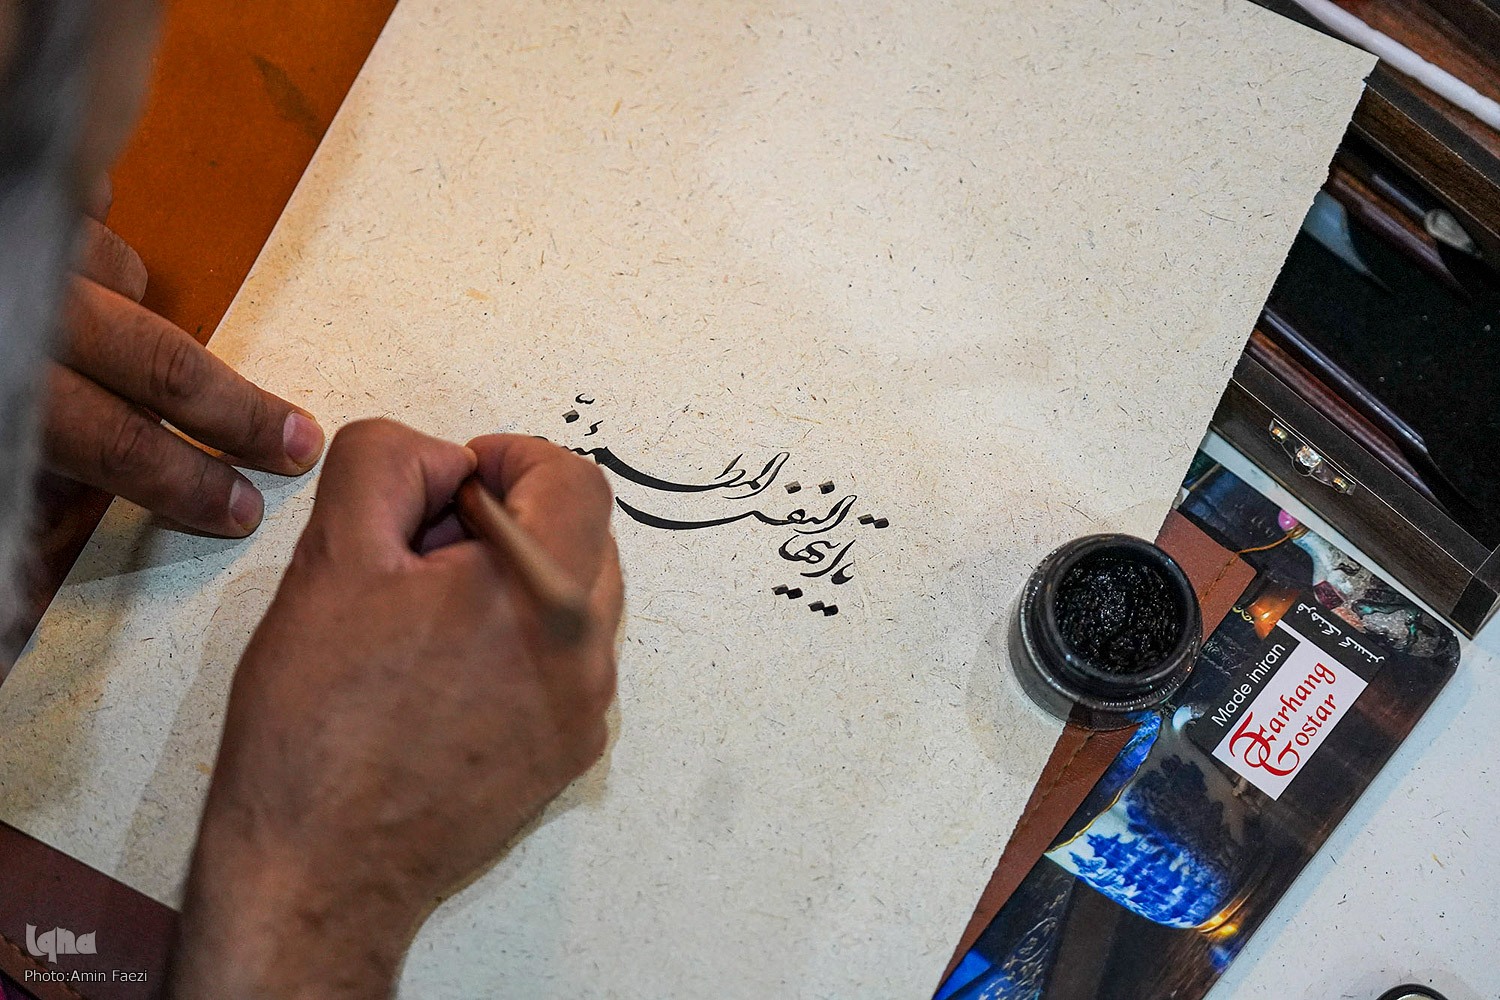 یا ایتها النفس المطمئنة
Made iniran
فرهنگ گستر
Farhang
Gostar
Iqna
Photo:Amin Faezi